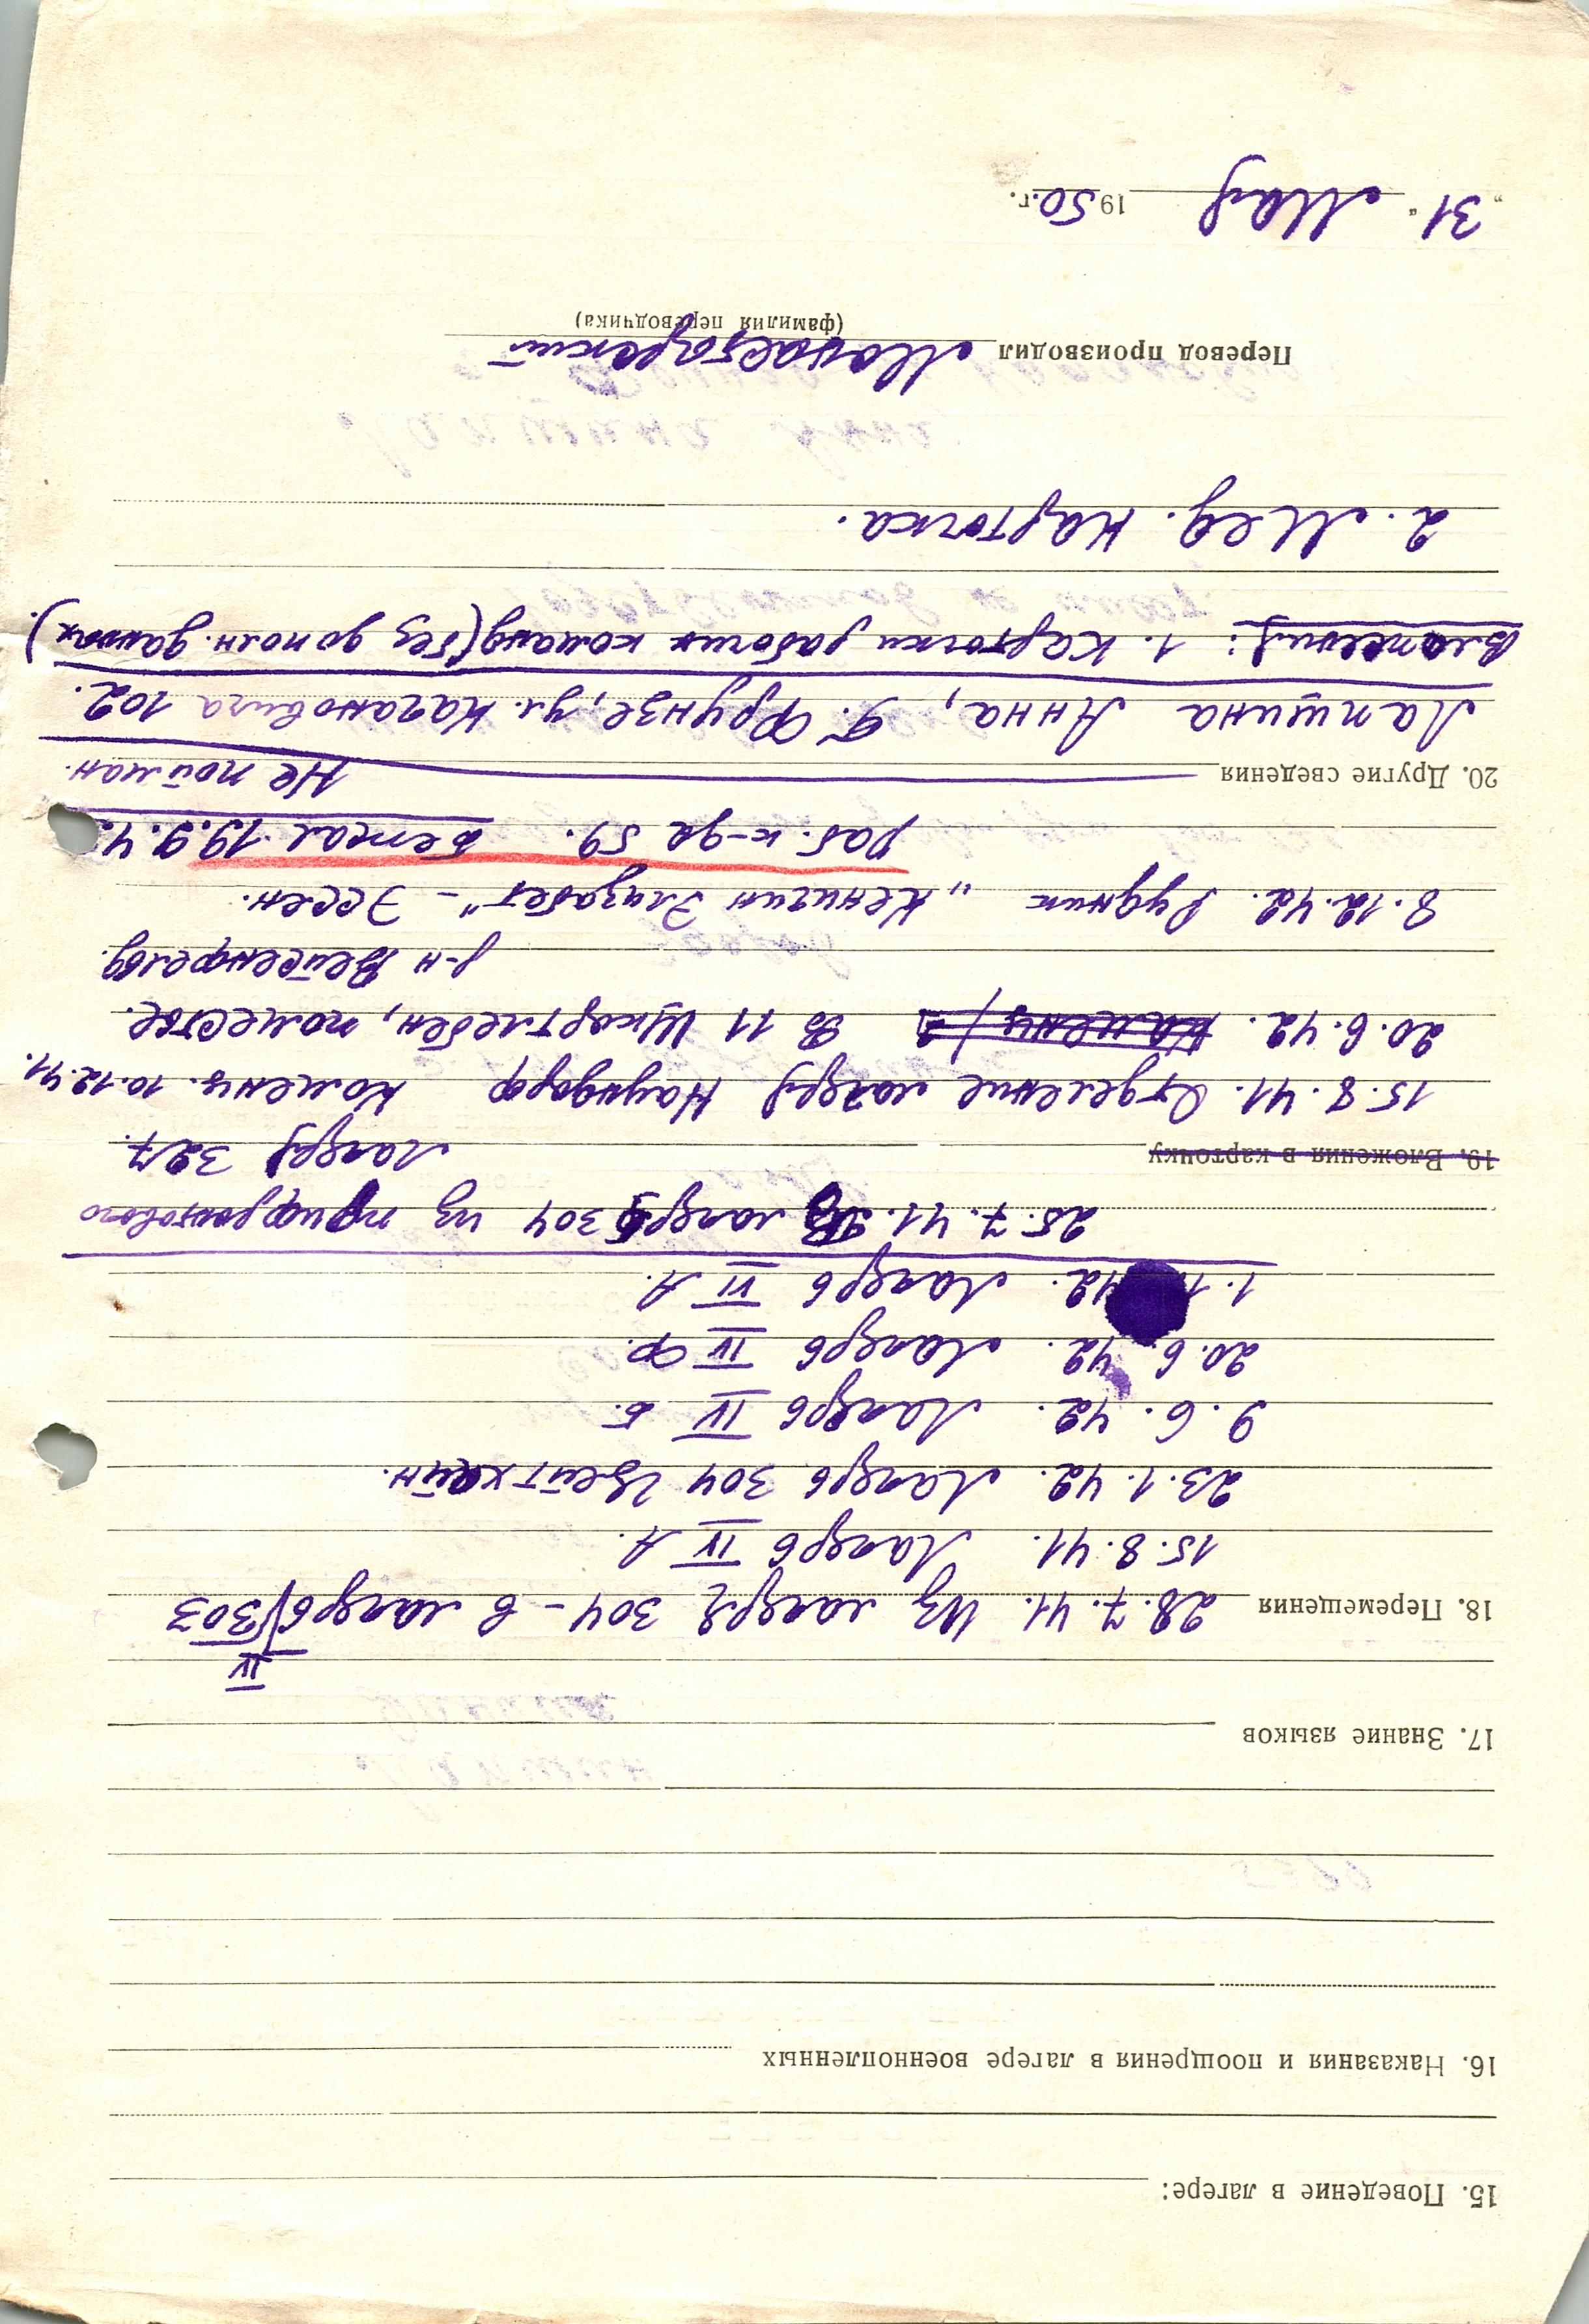 15. Поведение в лагере:
16. Наказания и поощрения в лагере военнопленных
17. Знание языков
IV
18. Перемещения 28.7.41. Из лагеря 304 - в лагерь 303
15.8.41. Лагерь IV А.
23.1.42. Лагерь 304 Цейтхайн.
9.6.42. Лагерь IV Б.
20.6.42. Лагерь IV Ф.
1.1 42. Лагерь VI А.
25.7.41. В лагерь 304 из прифронтового
19. Вложения в карточку лагеря 327.
15.8.41. Отделение лагеря Наундорф Коменц. 10.12.41.
20.6.42. В 11 Шкортлебен, поместье.
р-н Вейсенфельд.
8.12.42. Рудник „Кенигин Элизабет" - Эссен.
раб. к-да 59. бежал 19.9.4
20. Другие сведения Не пойман.
Лапшина Анна, г. Фрунзе, ул. Кагановича 102.
Вложения: 1. Карточки рабочих команд (без дополн. данных)
2. Мед. карточка.
Перевод производил Монастырский
(фамилия переводчика)
„31" Мая 1950 г.